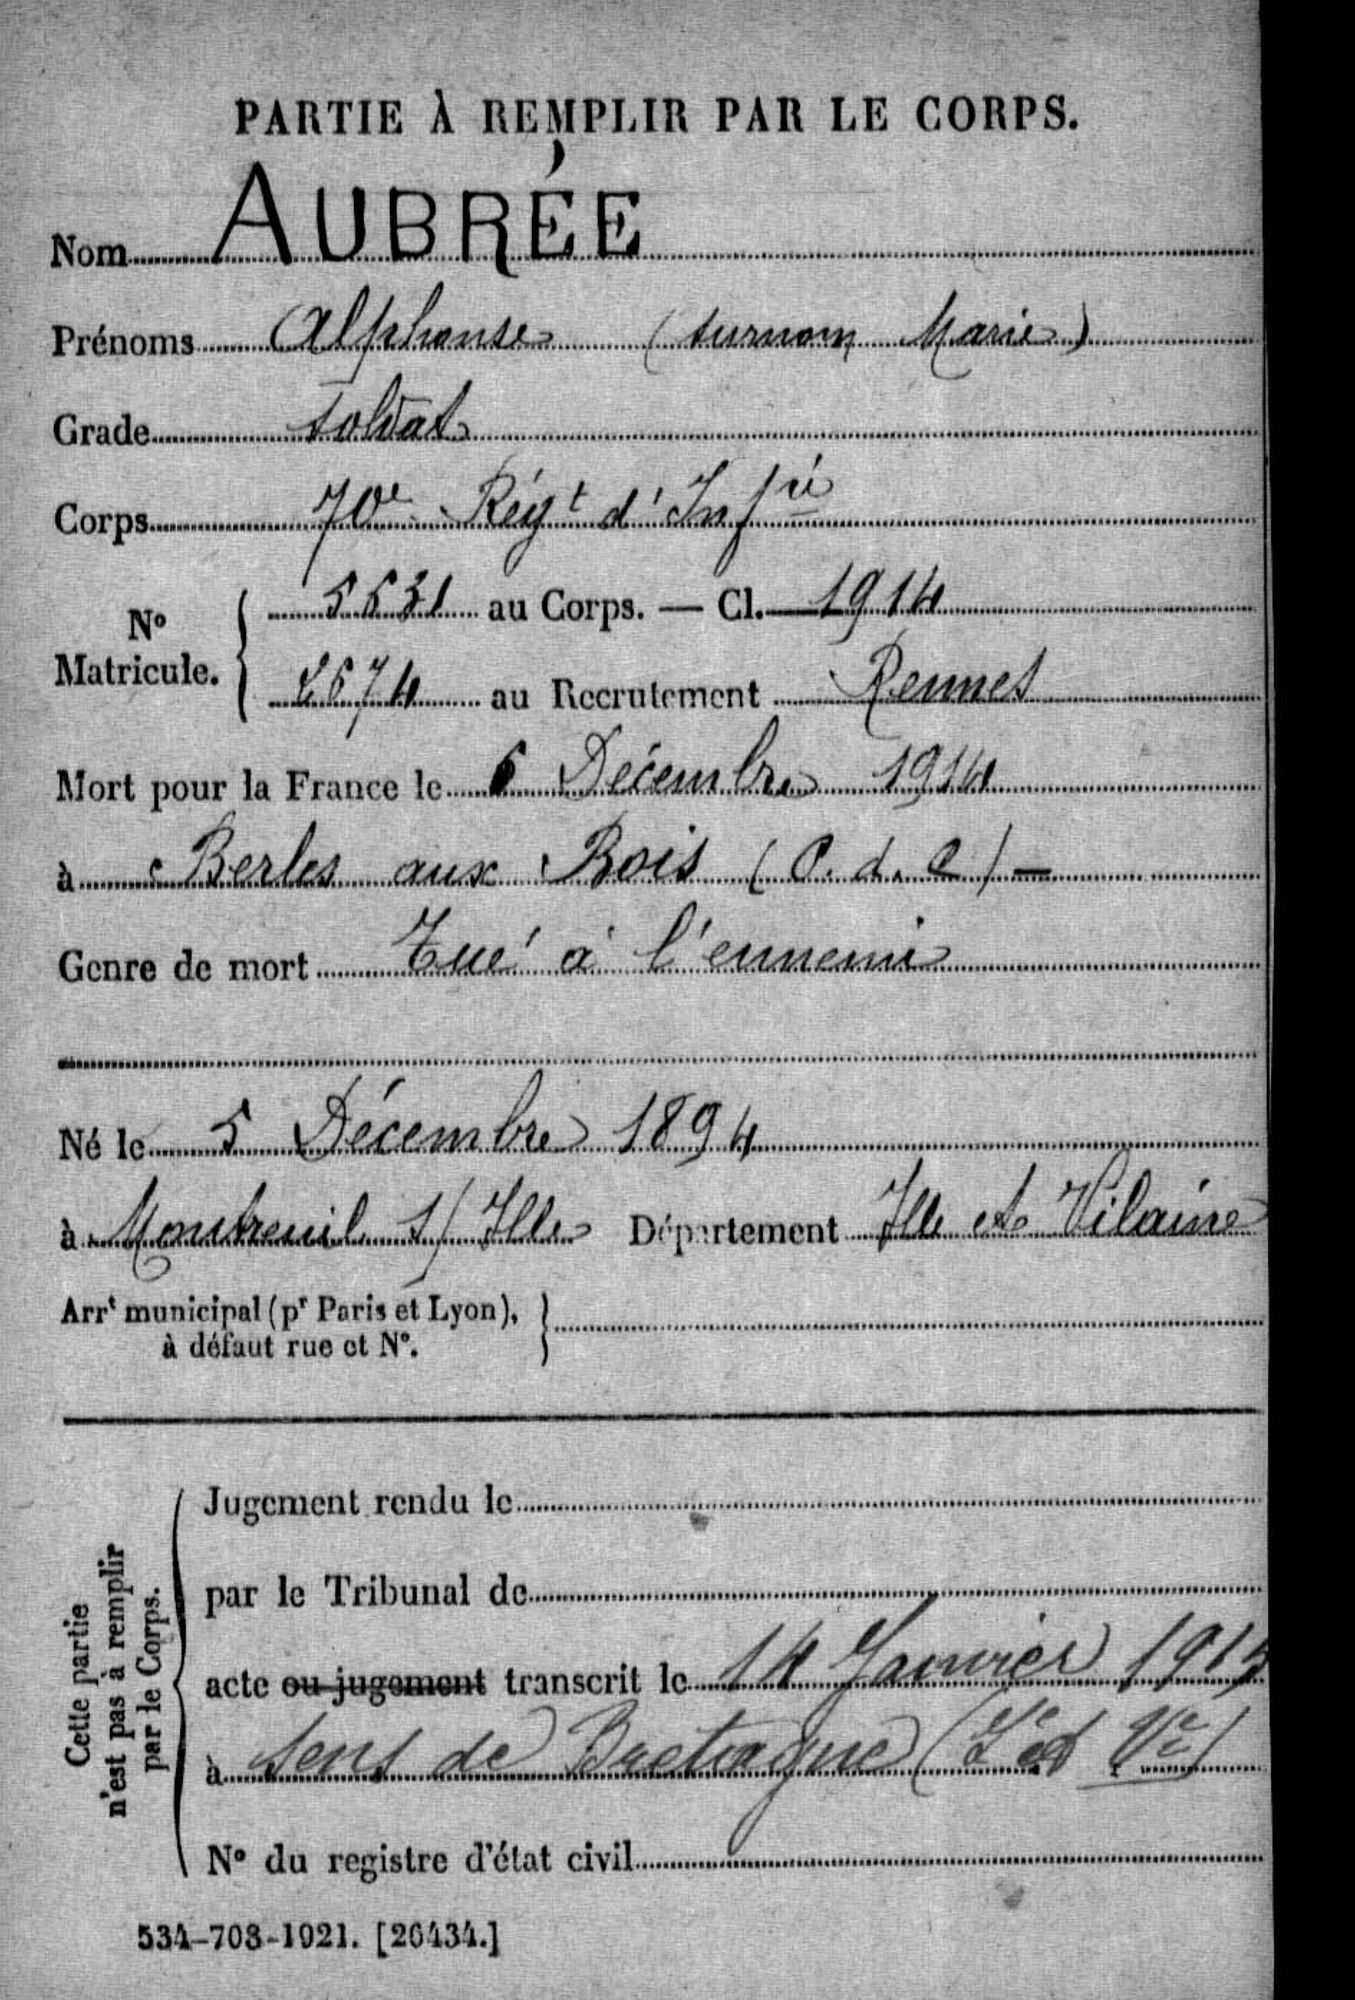 PARTIE À REMPLIR PAR LE CORPS.
Nom AUBRÉE
Prénoms Alphonse (surnom Marie)
Grade soldat
Corps 70e Régt d'Infie
No Matricule. { 5531 au Corps. — Cl. 1914
2574 au Recrutement Rennes
Mort pour la France le 6 Décembre 1914
à Berles aux Bois (P. d. C) —
Genre de mort Tué à l'ennemi
Né le 5 Décembre 1894
à Montreuil s/ Ille Département Ille et Vilaine
Arrt municipal (pr Paris et Lyon),
à défaut rue et No. }
Cette partie
n'est pas à remplir
par le Corps. {
Jugement rendu le
par le Tribunal de
acte ou jugement transcrit le 14 Janvier 1915
à Sens de Bretagne (Ie et Ve)
No du registre d'état civil
534-708-1921. [26434.]